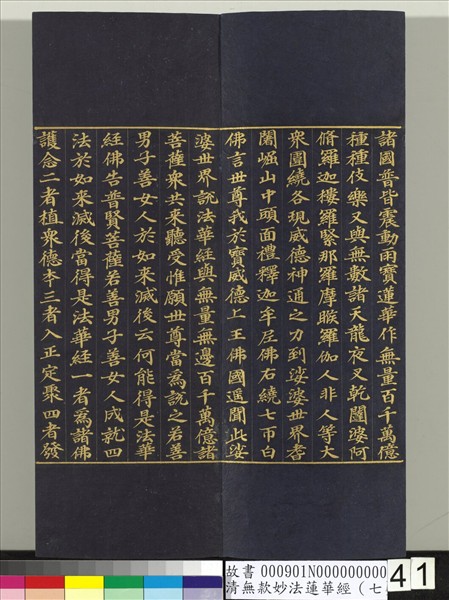 諸國普皆震動雨寶蓮華作無量百千萬億
種種伎樂又與無數諸天龍夜叉乾闥婆阿
脩羅迦樓羅緊那羅摩睺羅伽人非人等大
衆圍繞各現威德神通之力到娑婆世界耆
闍崛山中頭面禮釋迦牟尼佛右繞七帀白
佛言世尊我於寶威德上王佛國遙聞此娑
婆世界說法華經與無量無邊百千萬億諸
菩薩衆共來聽受惟願世尊當爲說之若善
男子善女人於如來滅後云何能得是法華
經佛告普賢菩薩若善男子善女人成就四
法於如來滅後當得是法華經一者爲諸佛
護念二者植衆德本三者入正定聚四者發
故書 000901N000000000
清無款妙法蓮華經（七
41